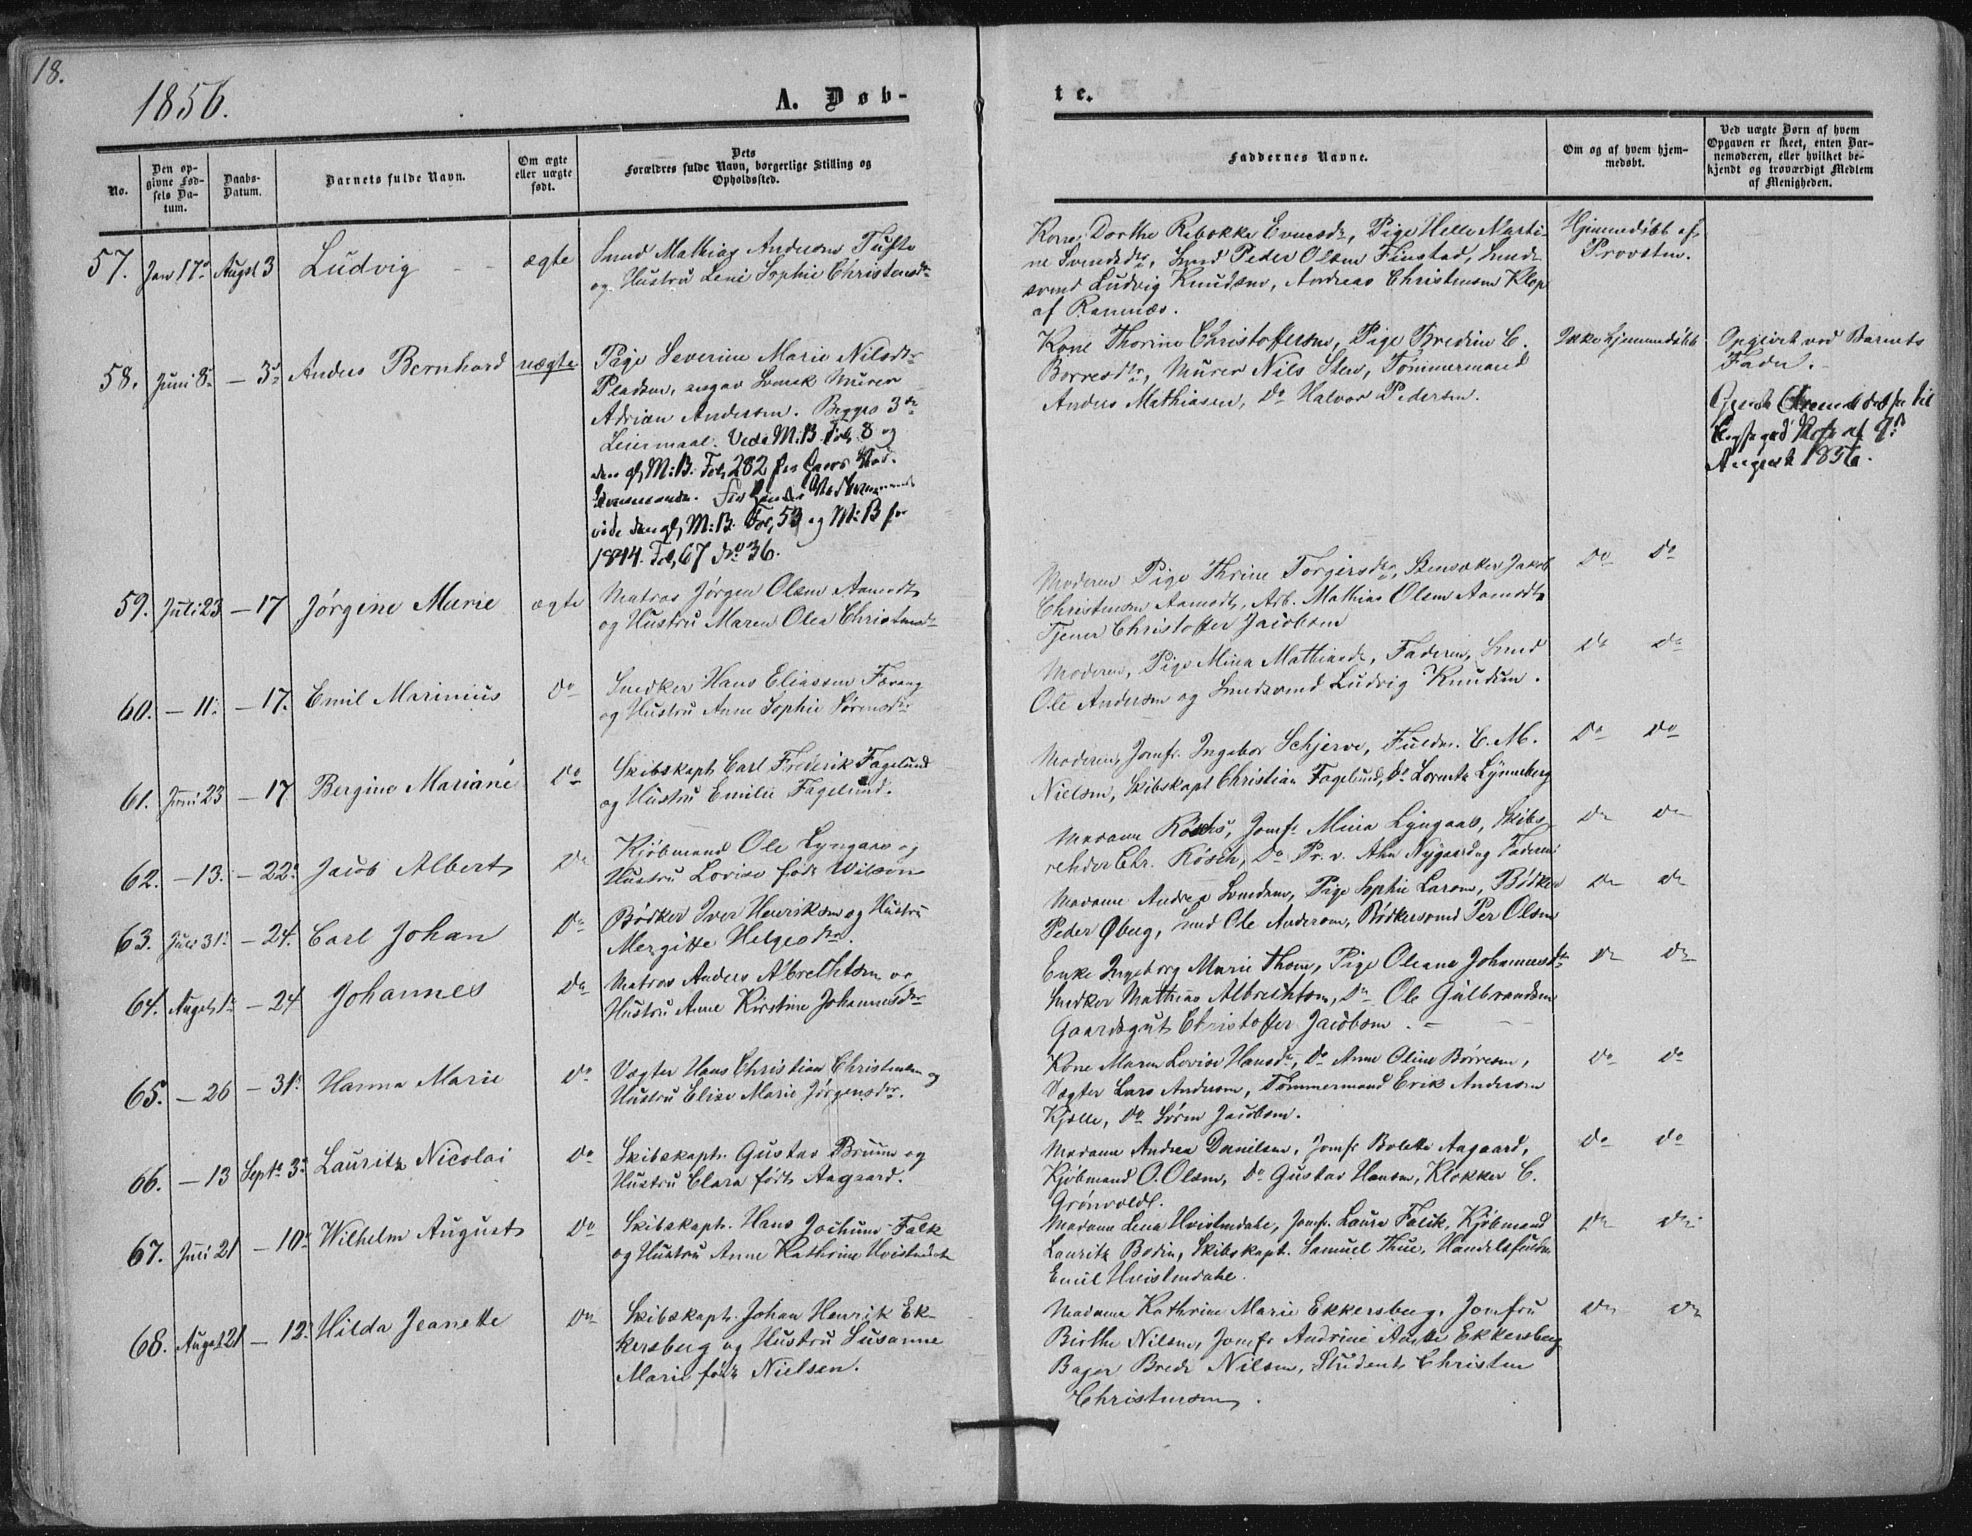 18.
1856.
A. Døb-
te.
No.
Den opgivne Fødsels Datum.
Daabs-Datum.
Barnets fulde Navn.
Om ægte eller uægte født.
Dets Forældres fulde Navn, borgerlige Stilling og Opholdssted.
Faddernes Navne.
Om og af hvem hjemmedøbt.
Ved uægte Børn af hvem Opgaven er skeet, enten Barnemoderen, eller hvilket bekjendt og troværdigt Medlem af Menigheden.
57. Jan 17de Augst 3 Ludvig ægte
Smed Mathias Andersen Tufte
og Hustru Leni Sophie Christensdr
Kone Dorthe Rebekke Evensdr, Pige Helle Marti-
ne Svendsdr, Smed Peder Olsen Finstad, Smed-
svend Ludvig Knudsen, Andreas Christensen Klop
af Ramnæs.
Hjemmedøbt af
Provsten.
58. Juni 8de – 3de Anders Bernhard uægte
Pige Severine Marie Nilsdr
Pladsen, angav Svensk Murer
Adrian Andersen. Begges 3de
Leiermaal. Vide M.B. Fol. 8 og
den gl. M.B. Fol. 282 for hans Ved-
kommende. For hendes Vedkommende
vide den gl. M.B. Fol. 53 og M.B for
1844. Fol. 67 No 36.
Kone Thorine Christoffersen, Pige Bredine C.
Borresdr, Murer Nils Sten, Tømmermand
Anders Mathiasen, Do Halvor Pedersen.
Ikke hjemmedøbt
Opgivet ved Barnets
Fader.
August 1856.
59. Juli 23 – 17 Jørgine Marie ægte
Matros Jørgen Olsen Aamodt
og Hustru Maren Olea Christensdr
Moderen Pige Thrine Torgersdr, Jakob
Christensen Aamodt, Arb. Mathias Olsen Aamodt
Tjener Christoffer Jacobsen
Do Do
60. – 11. – 17. Emil Marinius Do
Snedker Hans Eliassen Farang
og Hustru Anne Sophie Sørensdr
Moderen, Pige Mina Mathiasdr, Faderen, Smed
Ole Andersen og Smedsvend Ludvig Knudsen.
Do Do
61. Juni 23 – 17 Bergine Mariane Do
Skibskapt. Carl Frederik Fagelund
og Hustru Emilie Fagelund.
Moderen, Jomfr. Ingebor Schjerve, Fuldm. C. M.
Nielsen, Skibskapt Christian Fagelund, Do Lorentz Lynneberg
Do Do
62. – 13. – 22. Jacob Albert Do
Kjøbmand Ole Lyngaas og
Hustru Lovise født Wilson
Madame Røsch, Jomfr Mina Lyngaas, Skibs-
rehder Chr. Røsch, Do Pr. v. Ahn Nygaard og Faderen
Do Do
63. Juli 31. – 24. Carl Johan Do
Bødker Iver Henriksen og Hustru
Mergitte Helgesdr.
Madame Andrea Svendsen, Pige Sophie Larsen, Bødker
Peder Øberg, Smed Ole Andersen, Bødkersvend Per Olsen
Do Do
64. Augst 1. – 24 Johannes Do
Matros Anders Albrethtsen og
Hustru Anne Kirstine Johannesdr
Enke Ingeborg Marie Thom, Pige Oleana Johannesdr
Snedker Matthias Albrechtsen, Do Ole Gulbrandsen
Gaardsgut Christoffer Jacobsen.
Do Do
65. – 26 – 31. Hanna Marie Do
Vægter Hans Christian Christensen og
Hustru Elise Marie Jørgensdr.
Kone Maren Lovise Hansdr, Do Anne Oline Børresen,
Vægter Lars Andersen, Tømmermand Erik Andersen
Kjølle, Do Søren Jacobsen.
Do Do
66. – 13 Septr 3. Lauritz Nicolai Do
Skibskapt. Gustav Bruun og
Hustru Clara født Aagaard.
Madame Andrea Danielsen, Jomfr Bolette Aagaard,
Kjøbmand O. Olsen, Do Gustav Hansen, Klokker C.
Grønvoldt.
Do Do
67. Juli 21 – 10de Wilhelm August Do
Skibskapt. Hans Jochum Falk
og Hustru Anne Kathrine Hvistendahl
Madame Lena Hvistendahl, Jomfr. Laura Falck, Kjøbmand
Lauritz Bodin, Skibskapt. Samuel Thue, Handelsfuldm.
Emil Hvistendahl.
Do Do
68. Augst 21 – 12. Hilda Jeanette Do
Skibskapt. Johan Henrik Ek-
kersberg og Hustru Susanne
Marie født Nielsen.
Madame Kathrine Marie Ekkersberg, Jomfru
Birthe Nilsen, Jomfr Andrine Ekkersberg
Bager Brede Nilsen, Student Christen
Christensen.
Do Do